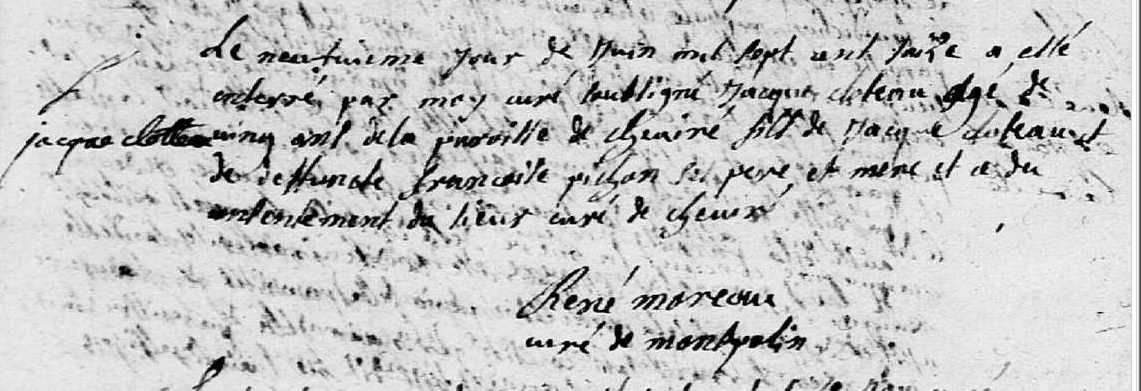 Le neufuieme jour de juin mil sept cent saize a esté
enterré par moy curé soubligné Jacque cloteau agé de
jacque clotteau
cinq ans de la paroisse de cheviré fils de Jacque cloteau et
de deffuncte francoise pichon ses pere et mere et a du
consentement du sieur curé de cheviré
René moreau
curé de montpolin